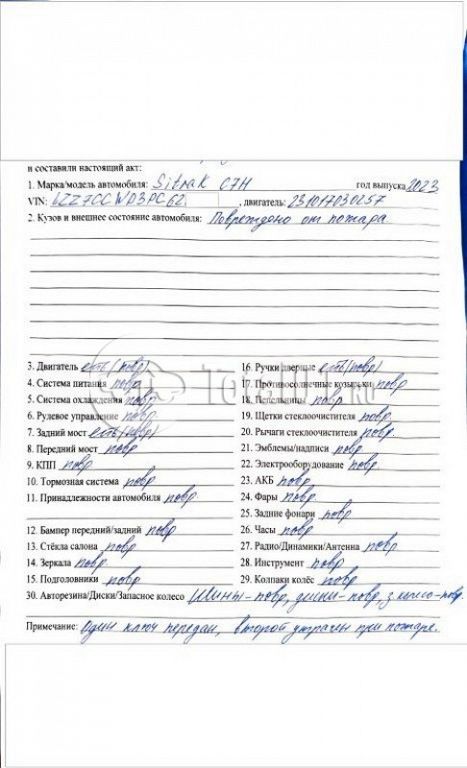 и составили настоящий акт:
1. Марка/модель автомобиля: Sitrak C7H год выпуска 2023
VIN: LZZ7CCWD3PC62 , двигатель: 231017030257
2. Кузов и внешнее состояние автомобиля: Повреждено от пожара
3. Двигатель есть (повр)
4. Система питания повр
5. Система охлаждения повр
6. Рулевое управление повр
7. Задний мост есть (повр)
8. Передний мост повр
9. КПП повр
10. Тормозная система повр
11. Принадлежности автомобиля повр
12. Бампер передний/задний повр
13. Стёкла салона повр
14. Зеркала повр
15. Подголовники повр
16. Ручки дверные есть (повр)
17. Противосолнечные козырьки повр
18. Пепельницы повр
19. Щетки стеклоочистителя повр.
20. Рычаги стеклоочистителя повр.
21. Эмблемы/надписи повр.
22. Электрооборудование повр.
23. АКБ повр.
24. Фары повр.
25. Задние фонари повр
26. Часы повр.
27. Радио/Динамики/Антенна повр.
28. Инструмент повр.
29. Колпаки колёс повр.
30. Авторезина/Диски/Запасное колесо Шины-повр, диски-повр, з. колесо-повр.
Примечание: Один ключ передан, второй утрачен при пожаре.